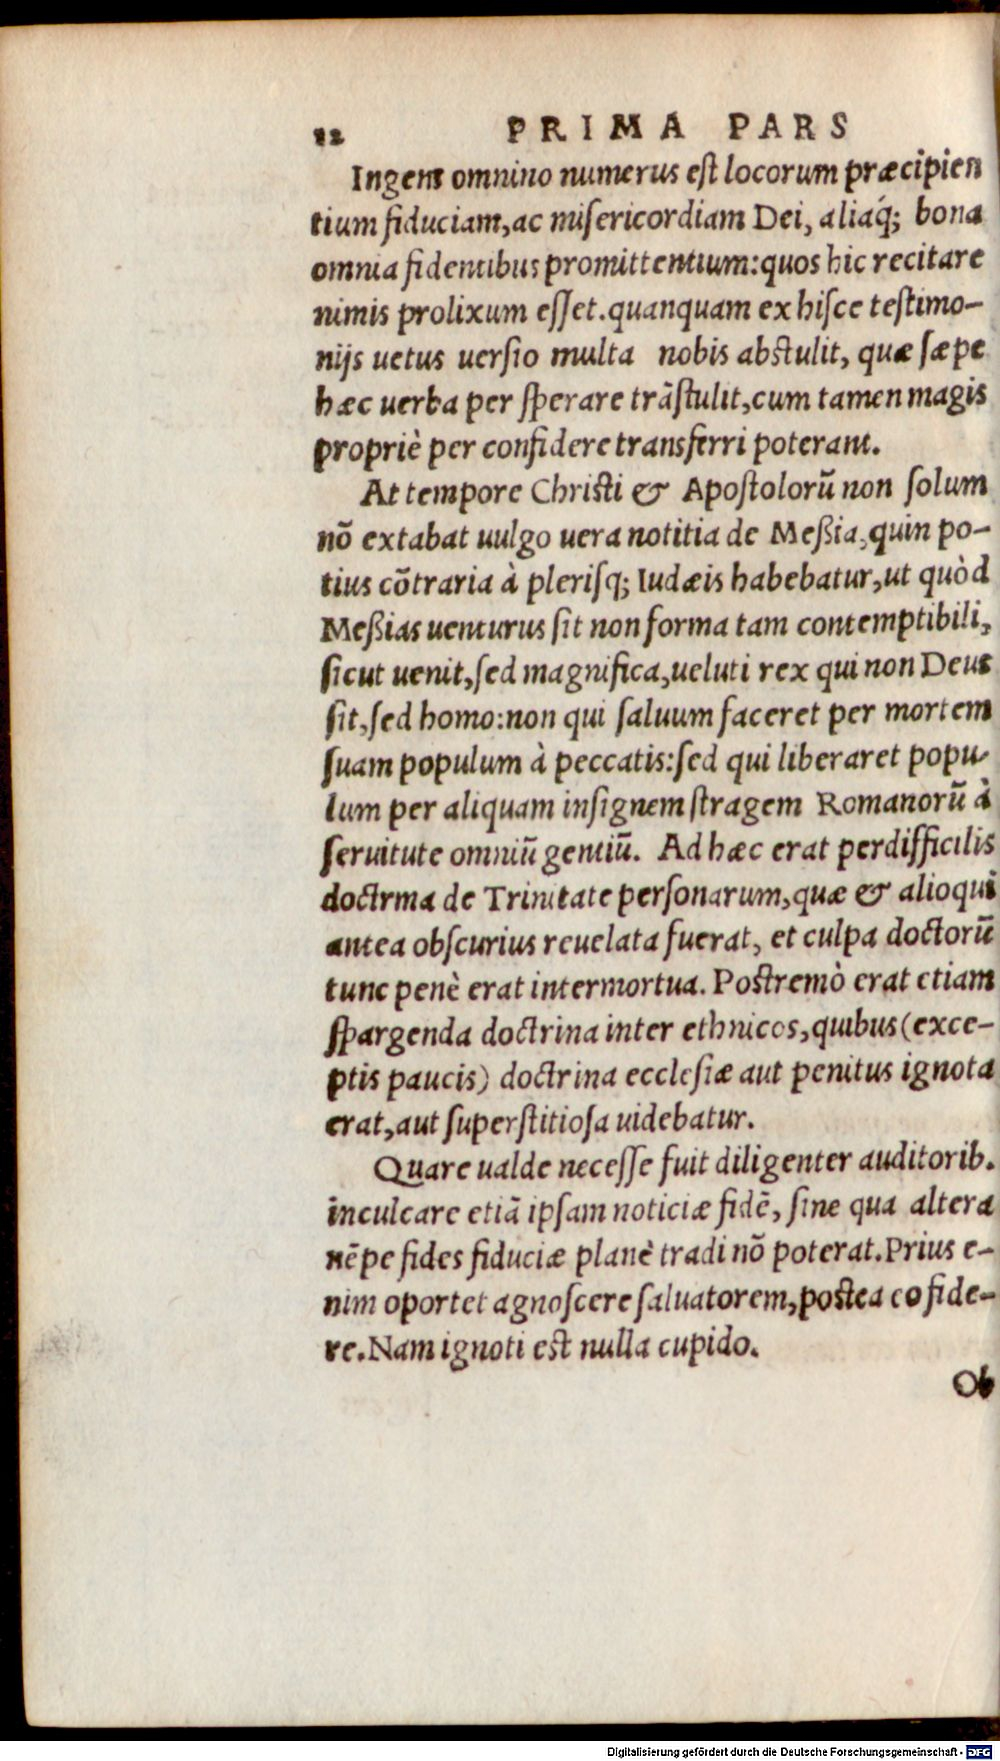 12 PRIMA PARS
Ingens omnino numerus est locorum præcipien
tium fiduciam, ac misericordiam Dei, aliaq́; bona
omnia fidentibus promittentium: quos hic recitare
nimis prolixum esset. quanquam ex hisce testimo-
nijs uetus uersio multa nobis abstulit, quæ sæpe
hæc uerba per sperare trãstulit, cum tamen magis
propriè per confidere transferri poterant.
At tempore Christi & Apostolorũ non solum
nõ extabat uulgo uera notitia de Meßia, quin po-
tius cõtraria à plerisq; Iudæis habebatur, ut quòd
Meßias uenturus sit non forma tam contemptibili,
sicut uenit, sed magnifica, ueluti rex qui non Deus
sit, sed homo: non qui saluum faceret per mortem
suam populum à peccatis: sed qui liberaret popu-
lum per aliquam insignem stragem Romanorũ à
seruitute omniũ gentiũ. Ad hæc erat perdifficilis
doctrina de Trinitate personarum, quæ & alioqui
antea obscurius reuelata fuerat, et culpa doctorũ
tunc penè erat intermortua. Postremò erat etiam
spargenda doctrina inter ethnicos, quibus (exce-
ptis paucis) doctrina ecclesiæ aut penitus ignota
erat, aut superstitiosa uidebatur.
Quare ualde necesse fuit diligenter auditorib.
inculcare etiã ipsam noticiæ fidẽ, sine qua altera
nẽpe fides fiduciæ planè tradi nõ poterat. Prius e-
nim oportet agnoscere saluatorem, postea cofide-
re. Nam ignoti est nulla cupido.
Ob
Digitalisierung gefördert durch die Deutsche Forschungsgemeinschaft - DFG